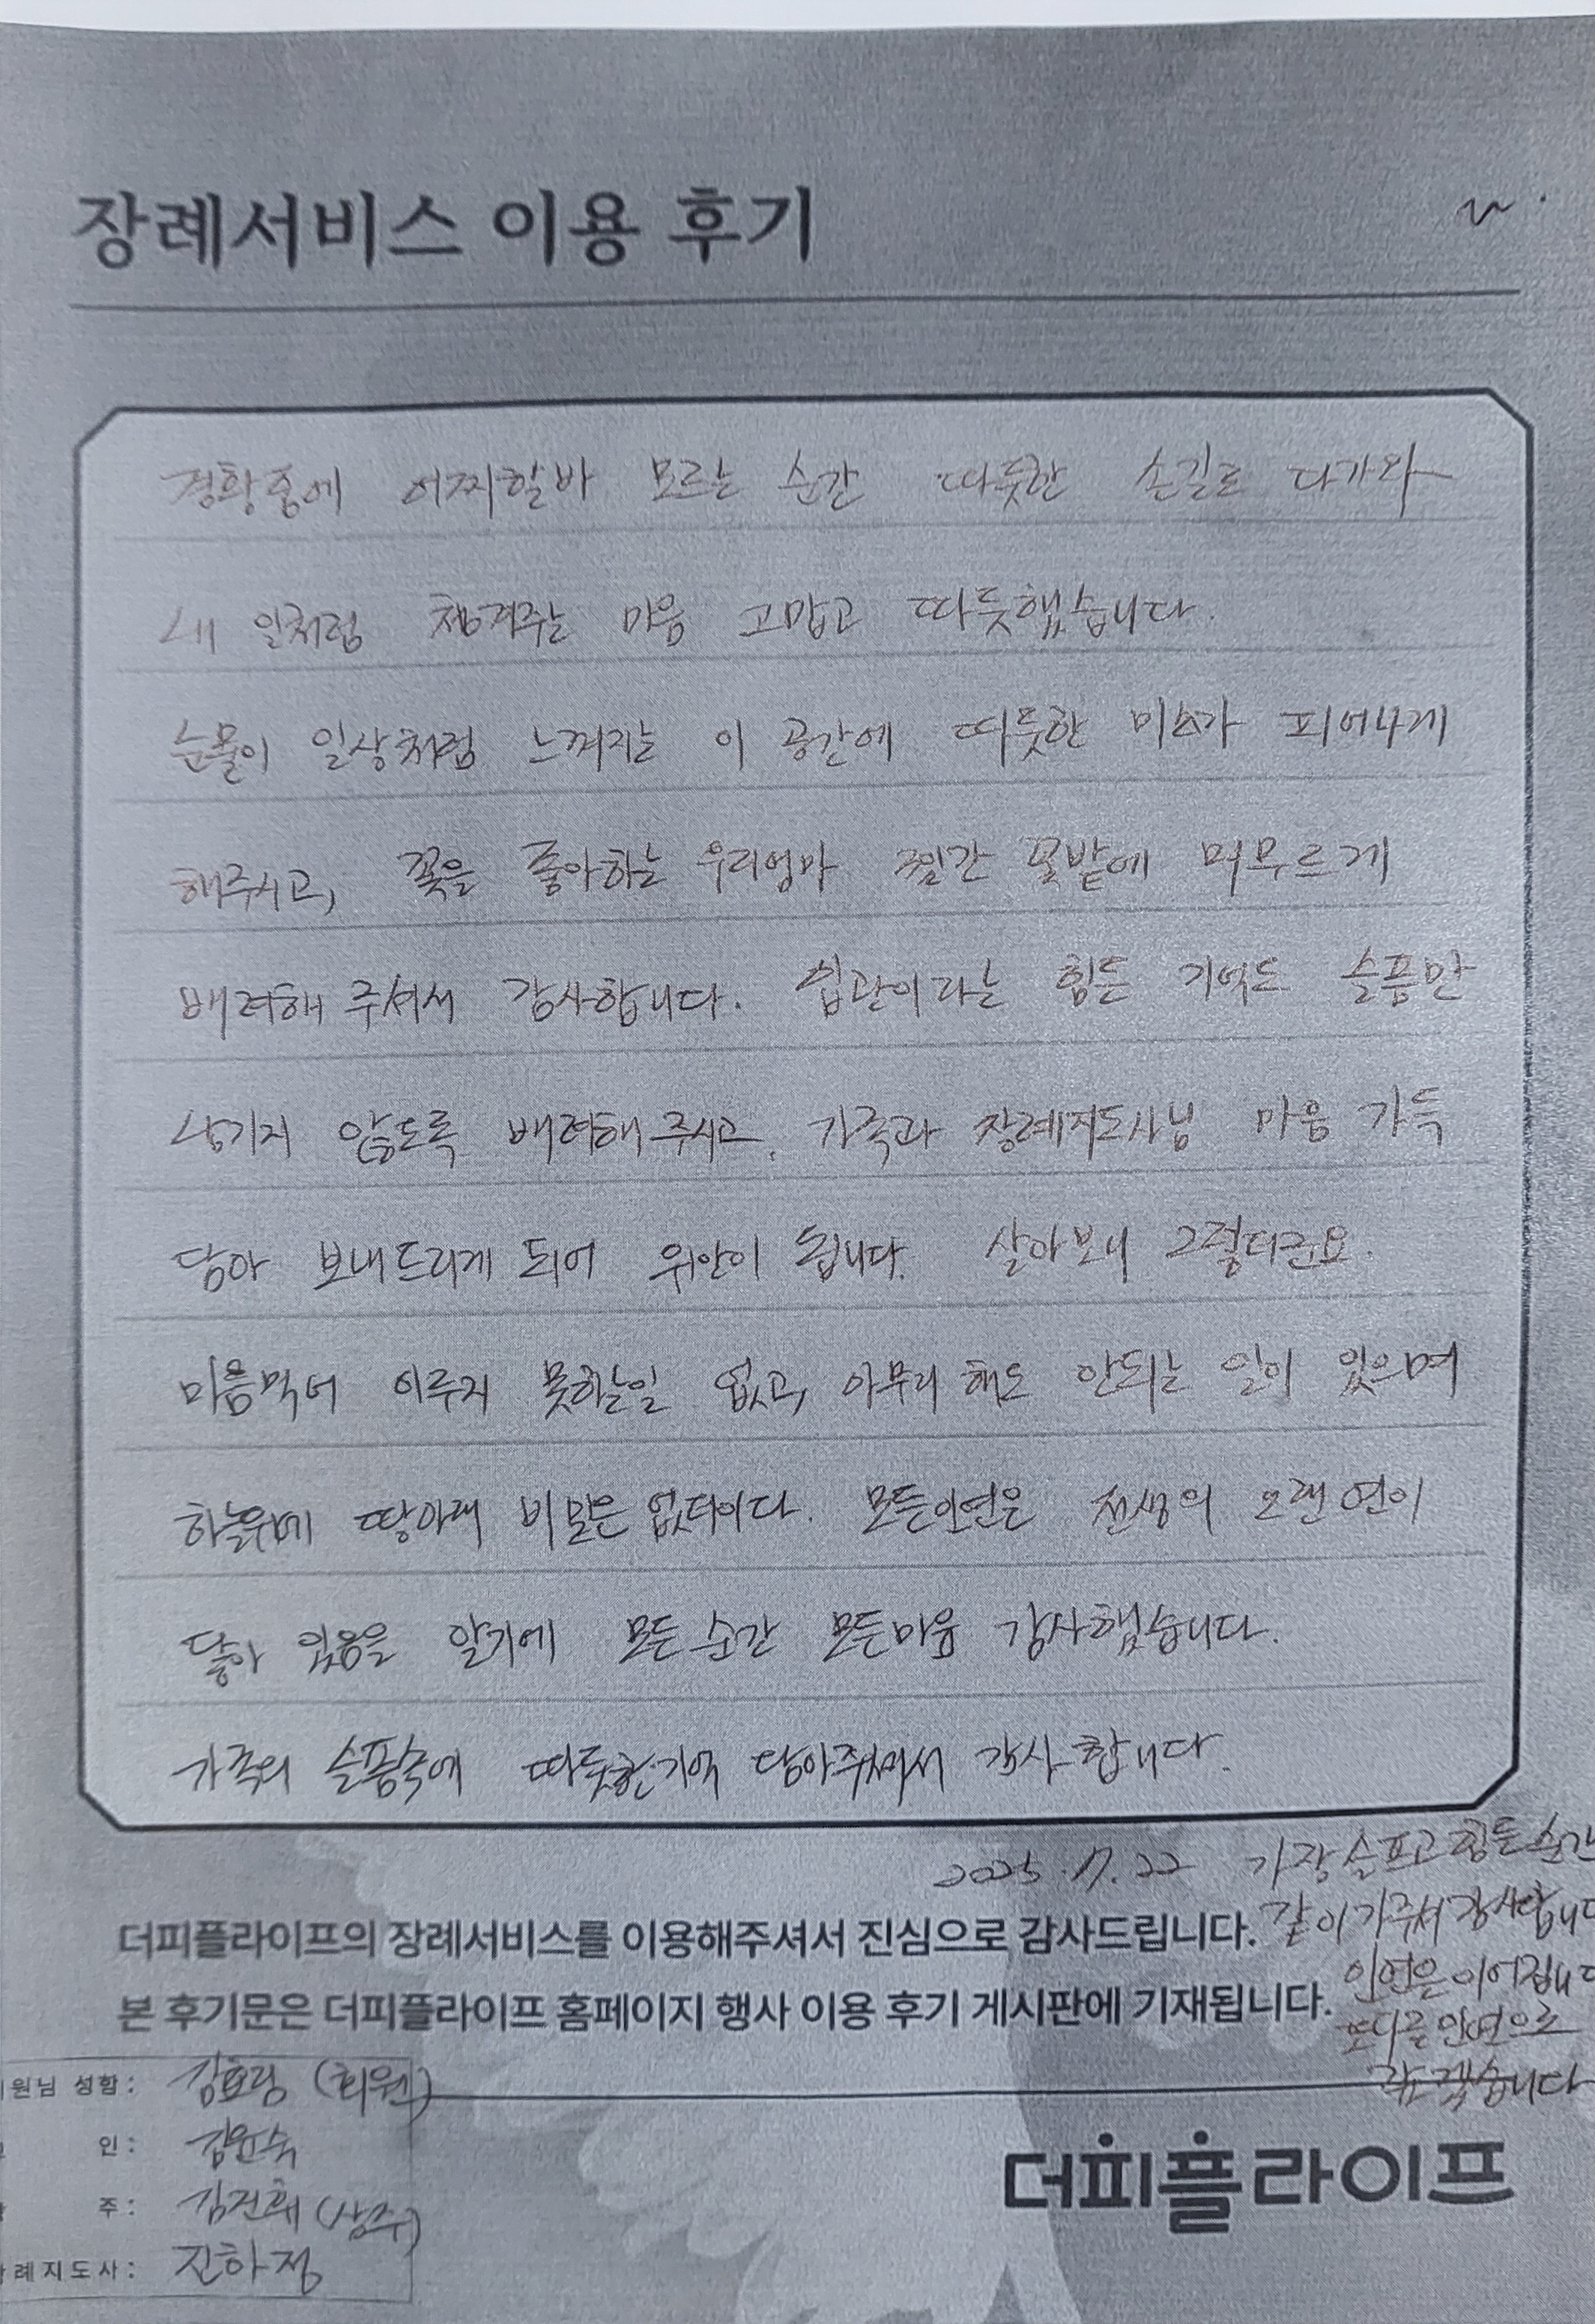 장례서비스 이용 후기
경황중에 어찌할바 모르는 순간 따듯한 손길로 다가와
내 일처럼 챙겨주는 마음 고맙고 따듯했습니다.
눈물이 일상처럼 느껴지는 이 공간에 따듯한 미소가 피어나게
해주시고, 꽃을 좋아하는 우리엄마 찜간 꽃밭에 머무르게
배려해 주셔서 감사합니다. 입관이라는 힘든 기억도 슬픔만
남기지 않도록 배려해 주시고, 가족과 장례지도사님 마음 가득
담아 보내드리게 되어 위안이 됩니다. 살아보니 그렇더군요.
마음먹어 이루지 못하는일 없고, 아무리 해도 안되는 일이 있으며
하늘위에 땅아래 비밀은 없더이다. 모든인연은 전생의 오랜 연이
닿아 있음을 알기에 모든 순간 모든마음 감사했습니다.
가족의 슬픔속에 따듯한기억 담아주셔서 감사합니다.
2025.7.22 가장 슬프고 힘든 순간
더피플라이프의 장례서비스를 이용해주셔서 진심으로 감사드립니다. 같이가주셔 감사합니다
본 후기문은 더피플라이프 홈페이지 행사 이용 후기 게시판에 기재됩니다. 인연은 이어집니다
또다른 인연으로
뵙겠습니다
원님 성함: (회원)
인: 김윤숙
주: (상주)
례지도사: 진하정
더피플라이프